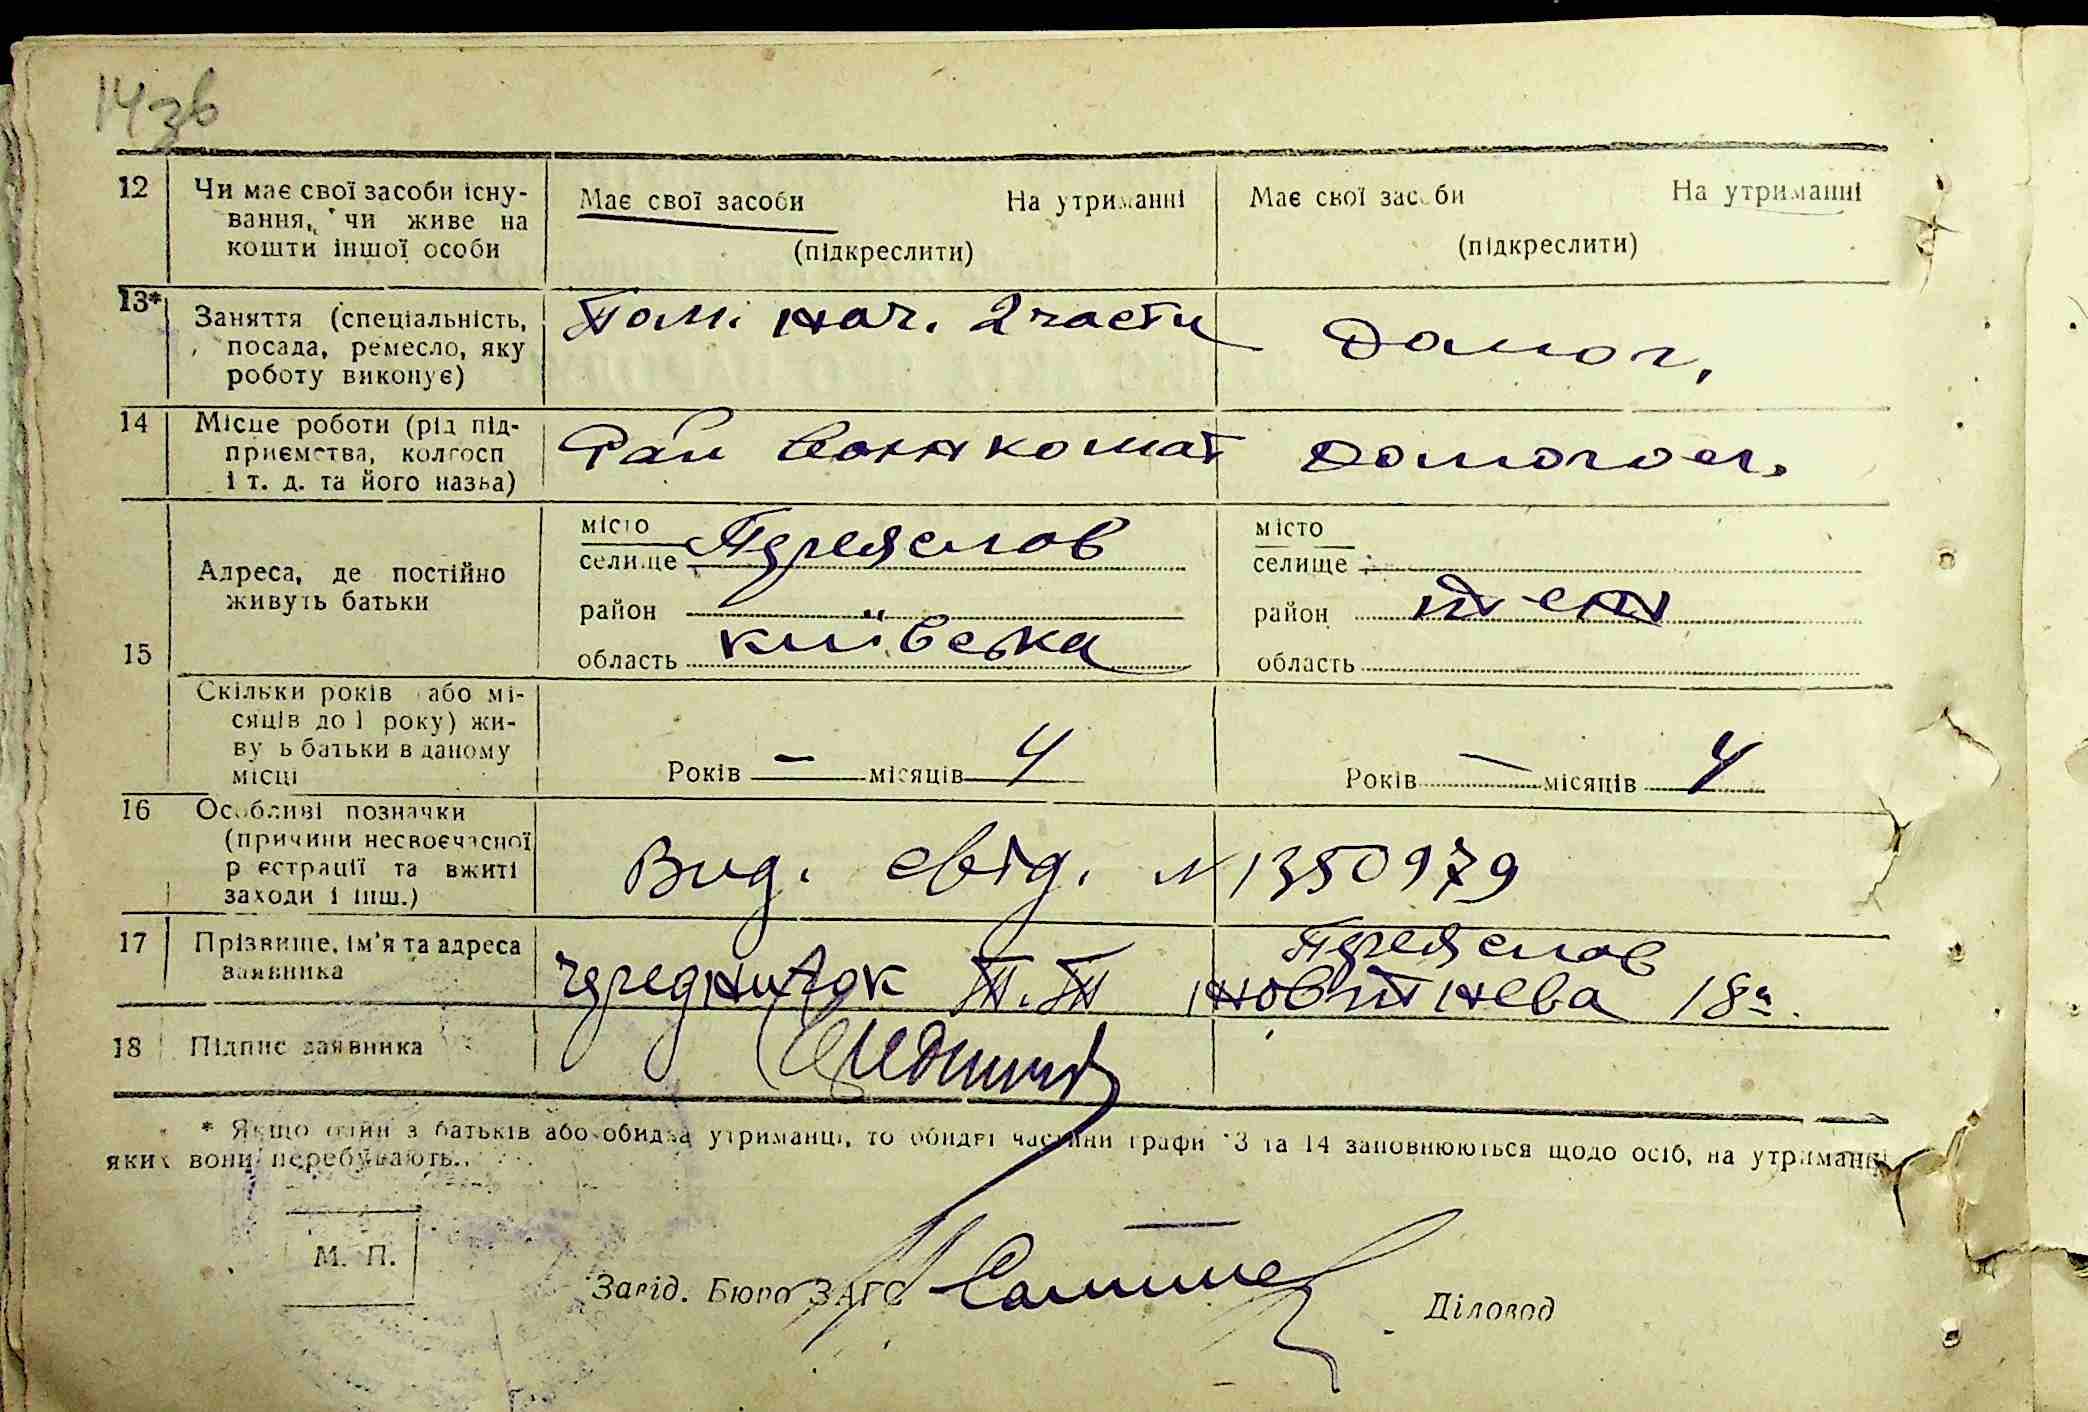 14зв
12 Чи має свої засоби існу- Має свої засоби На утриманні Має свої засоби На утриманні
вання, чи живе на
кошти іншої особи (підкреслити) (підкреслити)
13* Заняття (спеціальність, Пом. нач. 2 части Домог.
посада, ремесло, яку
роботу виконує)
14 Місце роботи (рід під- Рай Воєнкомат Домогосп.
приємства, колгосп
і т. д. та його назва)
15 Адреса, де постійно місто Переяслов місто
живуть батьки селище селище
район район
область київська область
Скільки років або мі- Років — місяців 4 Років — місяців 4
сяців до 1 року) жи-
вуть батьки в даному
місці
16 Особливі позначки Вид. свід. № 1350979
(причини несвоєчасної
реєстрації та вжиті
заходи і інш.)
17 Прізвище, ім'я та адреса Чередничок П.П Переяслов
заявника новотнева 18а.
18 Підпис заявника
* Якщо один з батьків або обидва утриманці, то обидві частини графи 13 та 14 заповнюються щодо осіб, на утриманні
яких вони перебувають.
М. П.
Завід. Бюро ЗАГС Діловод